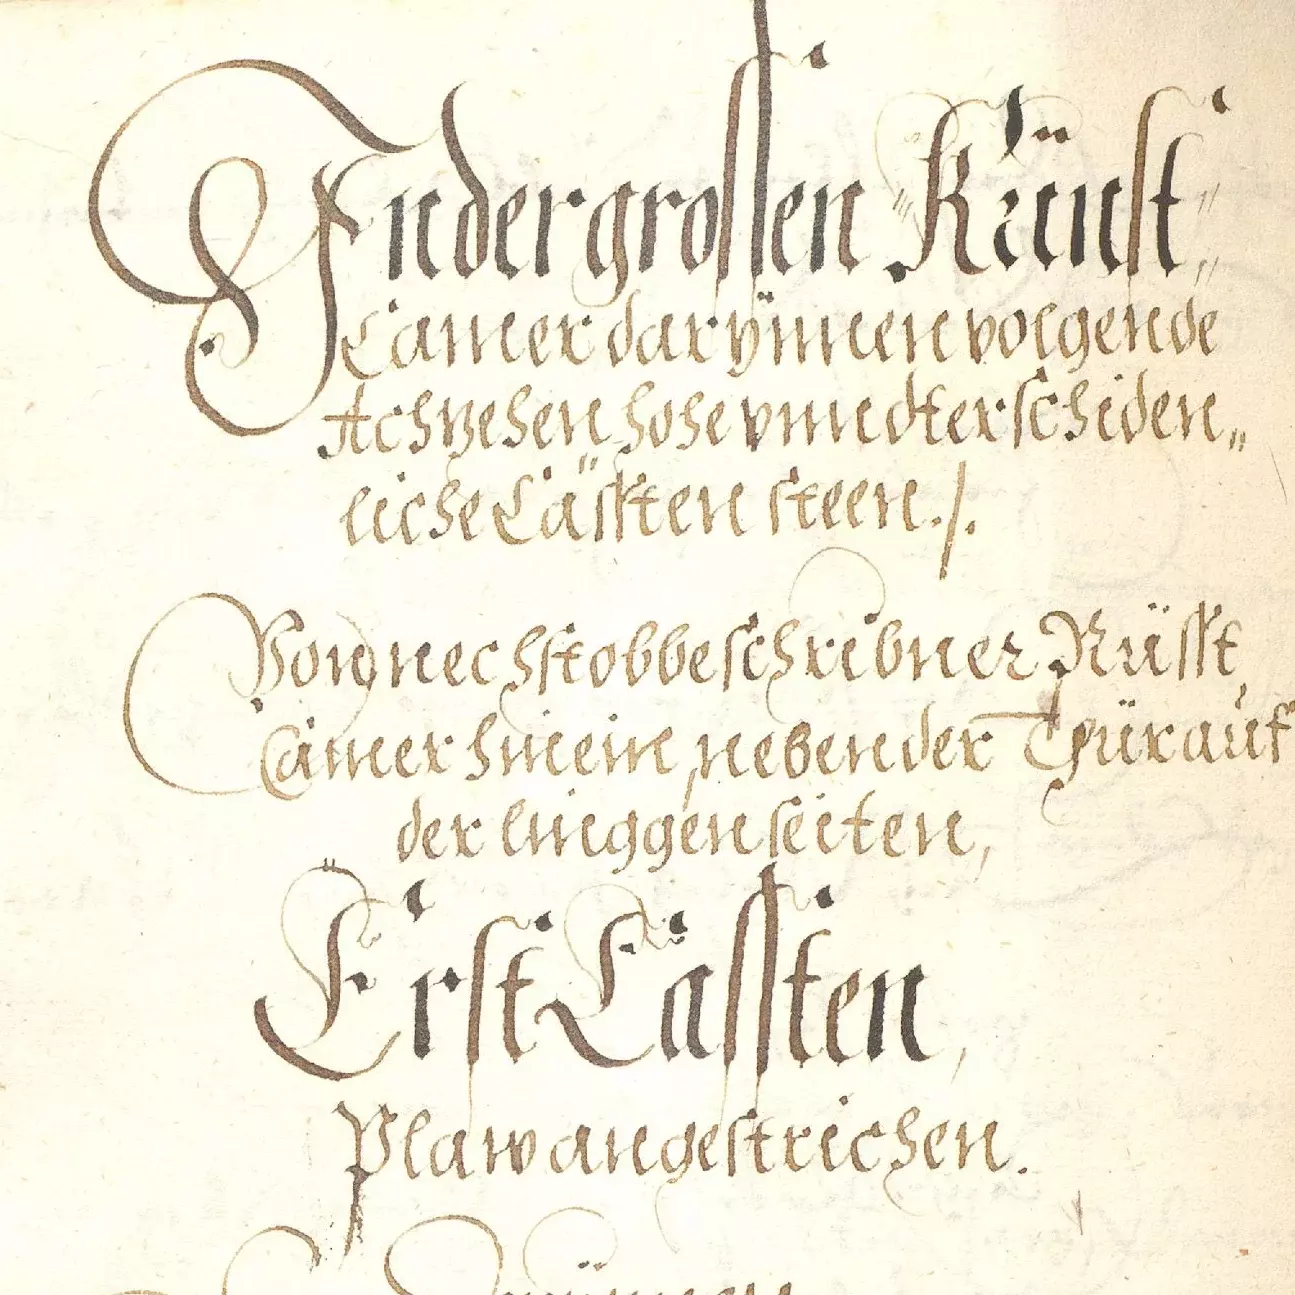 In der grossen Künst„
Camer darÿnnen volgende
Achzehen hohe vnndterschiden„
liche Cässten steen./.
Von nechst obbeschribner Rüsst,
Camer hinein, neben der Thür auf
der linggen seiten,
Erst Cassten,
Plaw angestrichen.